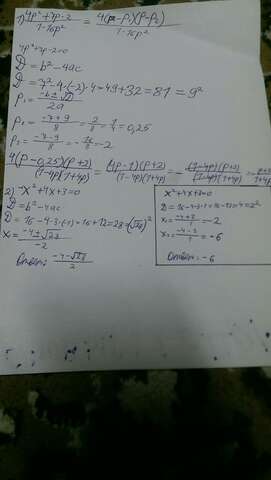 1) (4p²+7p-2)/(1-16p²) = 4(p-p₁)(p-p₂)/(1-16p²)
4p²+7p-2=0
D = b²-4ac
D = 7²-4·(-2)·4=49+32=81=9²
p₁ = (-b±√D)/2a
p₁ = (-7+9)/8 = 2/8 = 1/4 = 0,25
p₂ = (-7-9)/8 = -16/8 = -2
4(p-0,25)(p+2)/(1-4p)(1+4p) = (4p-1)(p+2)/(1-4p)(1+4p) = -(1-4p)(p+2)/(1-4p)(1+4p) = -(p+2)/(1+4p)
2) -x²+4x+3=0
D=b²-4ac
D = 16-4·3·(-1)=16+12=28=(√28)²
x₁ = (-4±√28)/-2
Ответ: (-4-√28)/2
x²+4x+3=0
D=16-4·3·1=16-12=4=2²
x₁ = (-4+2)/1 = -2
x₂ = (-4-2)/1 = -6
Ответ: -6